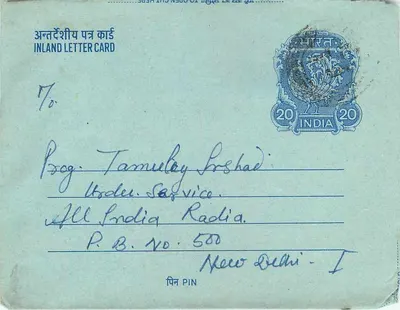 अन्तर्देशीय पत्र कार्ड
INLAND LETTER CARD
भारत
20 20
INDIA
To
Prog. Irshad
Urdu Service.
All India Radia.
P. B. No. 500
New Delhi - I
पिन PIN